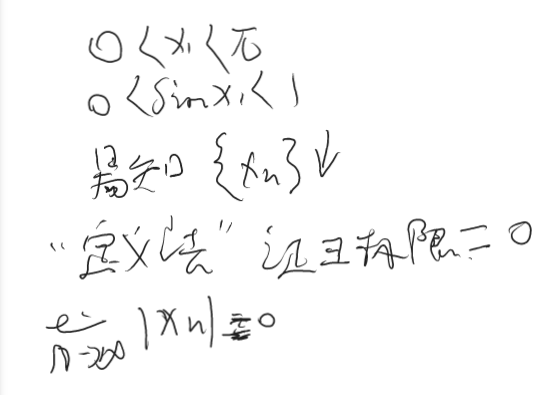 0<x₁<π
0<sinx₁<1
易知{xn}↓
“定义法”证主极限=0
n→∞|xn|=0